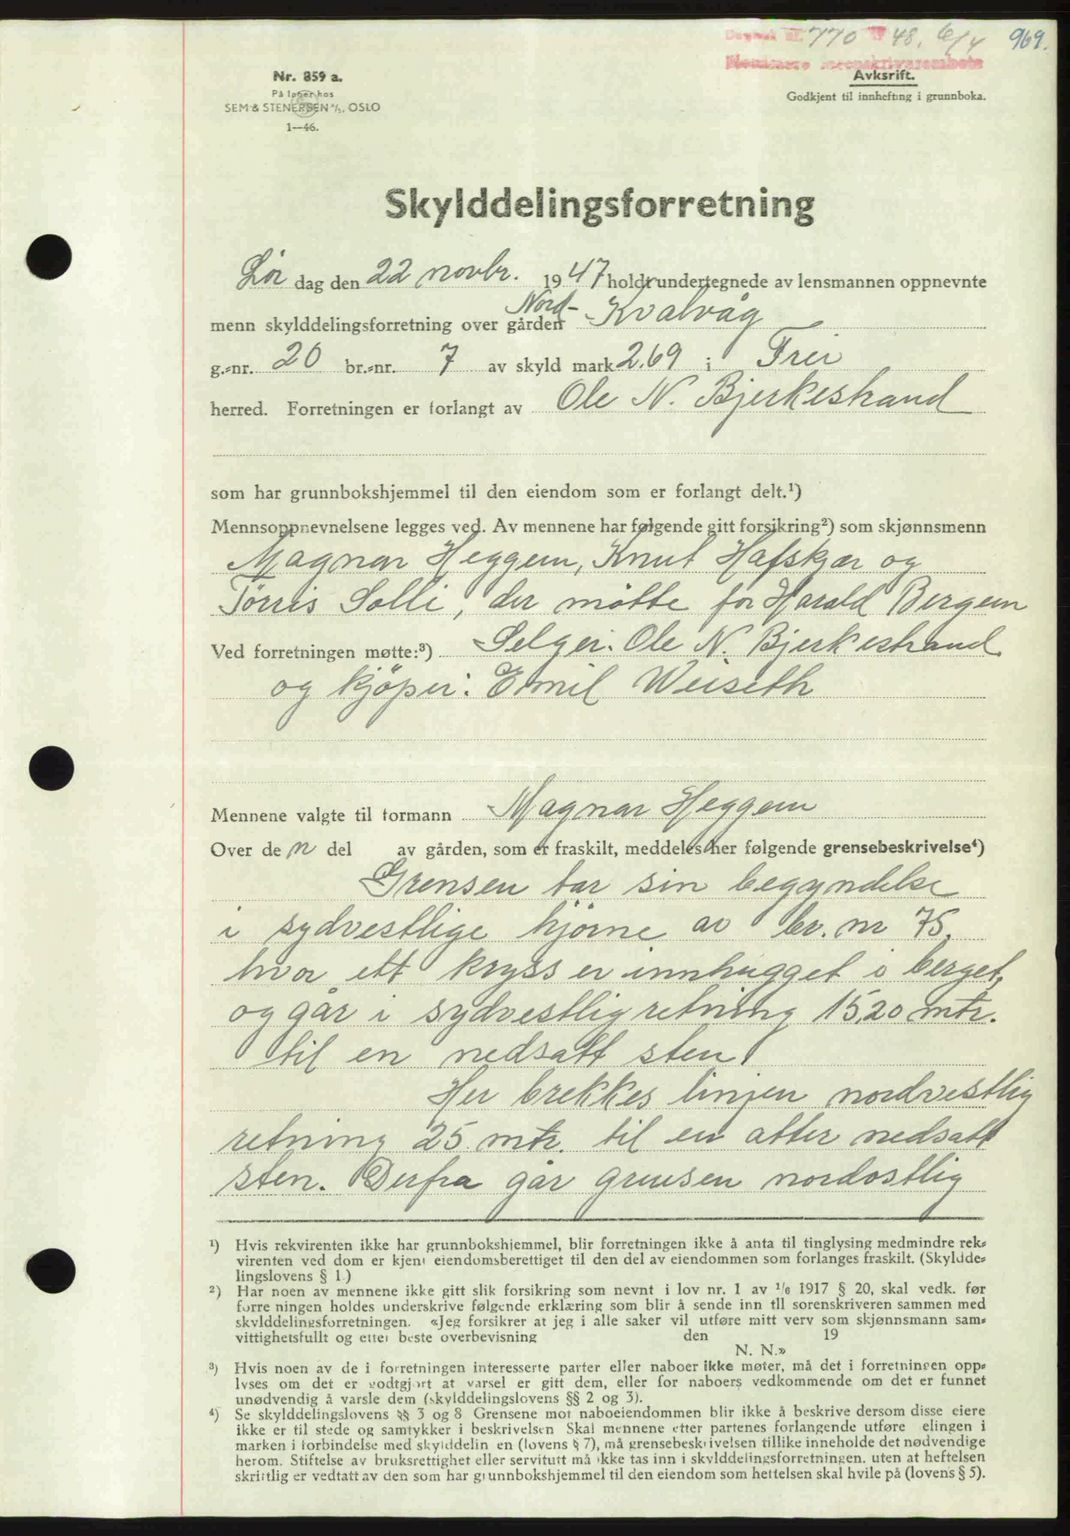 770 48. 6/4 969.
Nr. 859 a.
På lager hos
SEM & STENERSEN A/S, OSLO
1—46.
Avksrift.
Godkjent til innhefting i grunnboka.
Skylddelingsforretning
Lør dag den 22 novbr. 1947 holdt undertegnede av lensmannen oppnevnte
menn skylddelingsforretning over gården Nord- Kvalvåg
g.-nr. 20 br.-nr. 7 av skyld mark 2.69 i Frei
herred. Forretningen er forlangt av Ole N. Bjerkestrand
som har grunnbokshjemmel til den eiendom som er forlangt delt.¹)
Mennsoppnevnelsene legges ved. Av mennene har følgende gitt forsikring²) som skjønnsmenn
Magnar Heggem, Knut Hafskjær og
Tørris Solli, der møtte for Harald Bergem
Ved forretningen møtte:³) Selger: Ole N. Bjerkestrand
og kjøper: Emil Weiseth
Mennene valgte til formann Magnar Heggem
Over den del av gården, som er fraskilt, meddeles her følgende grensebeskrivelse⁴)
Grensen tar sin begyndelse
i sydvestlige hjørne av br. nr 75,
hvor ett kryss er innhugget i berget,
og går i sydvestlig retning 15,20 mtr.
til en nedsatt sten.
Her brekkes linjen nordvestlig
retning 25 mtr. til en atter nedsatt
sten. Derfra går grensen nordostlig
¹) Hvis rekvirenten ikke har grunnbokshjemmel, blir forretningen ikke å anta til tinglysing medmindre rek-
virenten ved dom er kjent eiendomsberettiget til den del av eiendommen som forlanges fraskilt. (Skyldde-
lingslovens § 1.)
²) Har noen av mennene ikke gitt slik forsikring som nevnt i lov nr. 1 av 1/6 1917 § 20, skal vedk. før
forretningen holdes underskrive følgende erklæring som blir å sende inn til sorenskriveren sammen med
skylddelingsforretningen. «Jeg forsikrer at jeg i alle saker vil utføre mitt verv som skjønnsmann sam-
vittighetsfullt og etter beste overbevisning den 19
N. N.»
³) Hvis noen av de i forretningen interesserte parter eller naboer ikke møter, må det i forretningen opp-
lyses om det er godtgjort at varsel er gitt dem, eller for naboers vedkommende om det er funnet
unødvendig å varsle dem (skylddelingslovens §§ 2 og 3).
⁴) Se skylddelingslovens §§ 3 og 8 Grensene mot naboeiendommen blir ikke å beskrive dersom disse eiere
ikke er til stede og samtykker i beskrivelsen Skal mennene etter partenes forlangende utføre delingen i
marken i forbindelse med skylddelingen (lovens § 7), må grensebeskrivelsen tillike inneholde det nødvendige
herom. Stiftelse av bruksrettighet eller servitutt må ikke tas inn i skylddelingsforretningen, uten at heftelsen
skriftlig er vedtatt av den som har grunnbokshjemmel til den eiendom som heftelsen skal hvile på (lovens § 5).